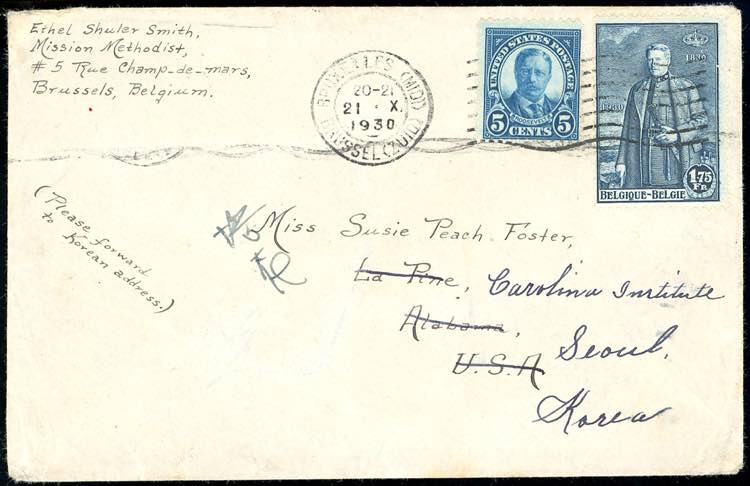 Ethel Shuler Smith,
Mission Methodist,
#5 Rue Champ-de-mars,
Brussels, Belgium.
BRUXELLES (MIDI)
20-21
21 · X.
1930
BRUSSEL (ZUID)
UNITED STATES POSTAGE
ROOSEVELT
5 CENTS 5
1830
1930
1.75
FR
BELGIQUE-BELGIË
(Please forward
to Korean address.)
Miss Susie Peach Foster,
La Pine, Carolina Institute
Alabama, Seoul,
U.S.A
Korea